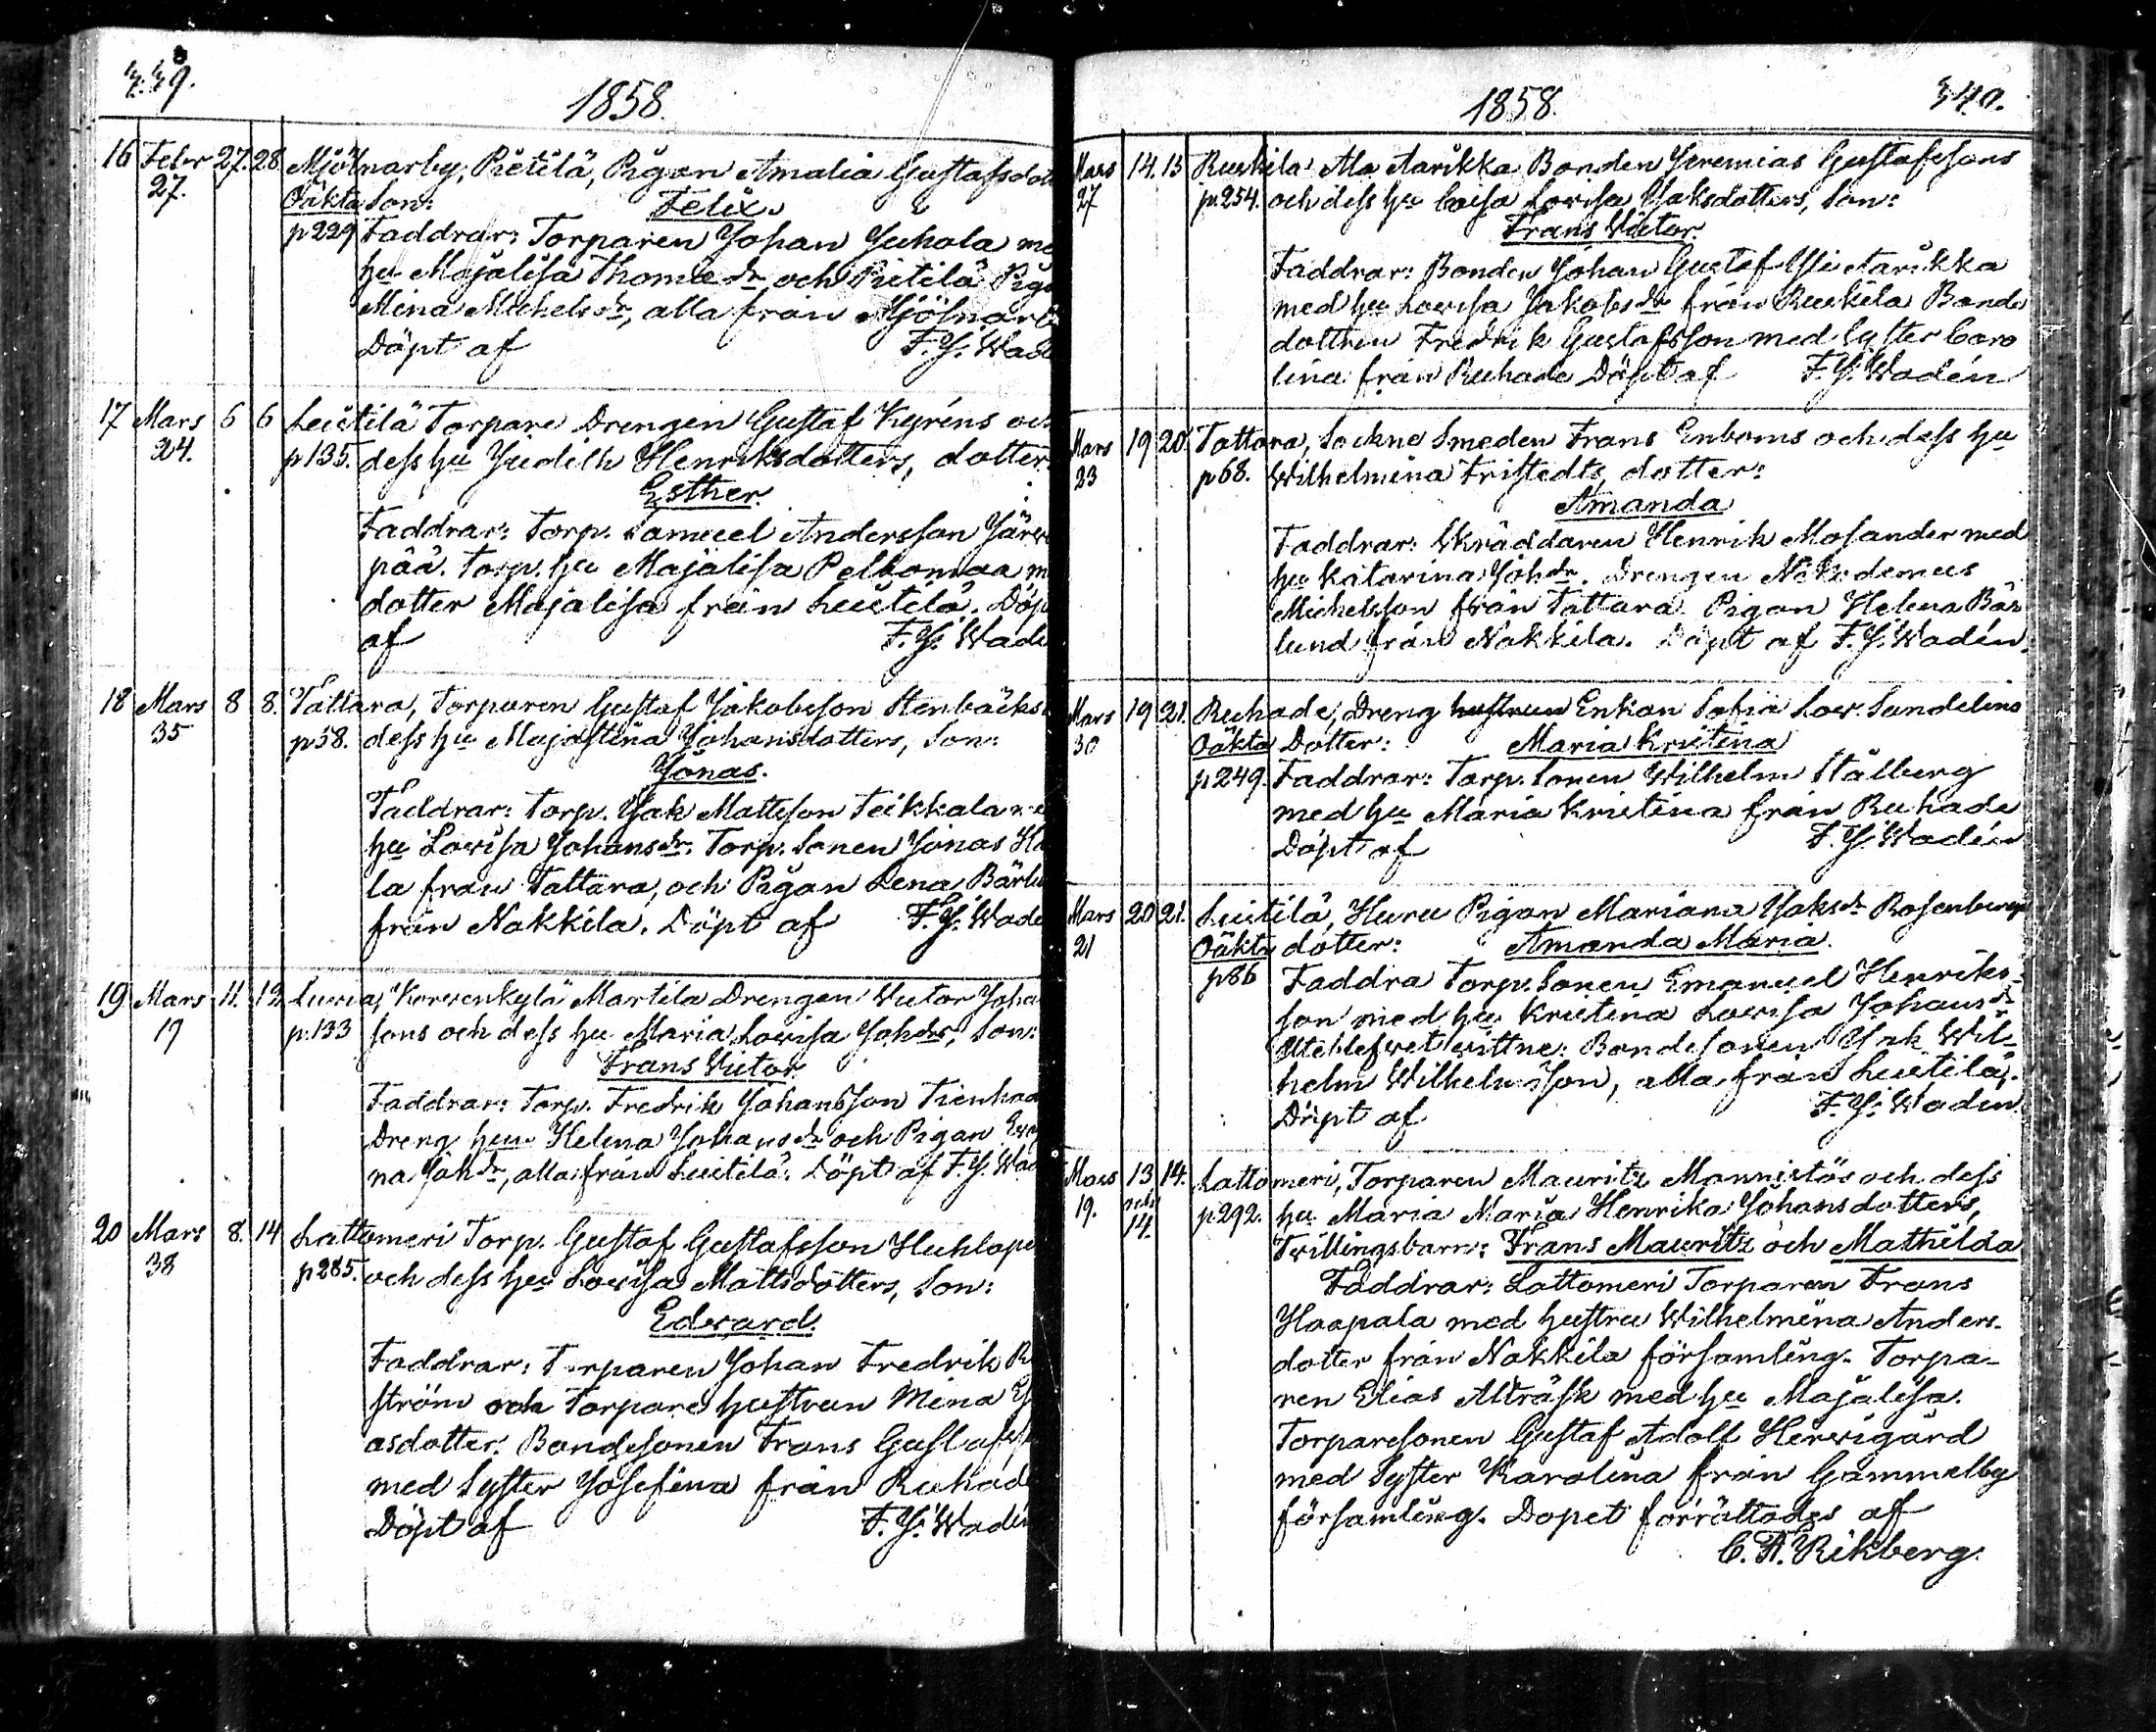 339.
1858.
16 Febr 27. 28. Mjölnarby, Pietilä, Pigan Amalia Gustafsdott
27. Oäkta Son: Felix.
p 229 Faddrar: Torparen Johan Juhola me
hu Majalisa Thomædr och Pietilä Piga
Mina Michelsdr, alla från Mjölnarb
Döpt af F. J. Wade
17 Mars 6 6 Leistilä Torpare Drengen Gustaf Kyréns och
24. p 135. dess hu Judith Henriksdotters, dotter:
Esther.
Faddrar: Torp. Samuel Andersson Järven
pää. Torp. hu Majalisa Peltomaa m
dotter Majalisa från Leistilä. Döp
af F. J. Wade
18 Mars 8 8. Tattara, Torparen Gustaf Jakobsson Stenbäcks
35 p 58. dess hu Majastina Johansdotters, Son:
Jonas.
Faddrar: Torp. Jak Mattsson Teikkala me
hu Lovisa Johansdr. Torp. Sonen Jonas Ha
la från Tattara, och Pigan Lena Bärlu
från Nakkila. Döpt af F. J. Wade
19 Mars 11. 12. Luvia, Korvenkylä Martila Drengen Victor Joha
17 p. 133 sons och dess hu Maria Lovisa Johdrs, Son:
Frans Victor
Faddrar: Torp. Fredrik Johansson Tienhaa
Dreng hun Helena Johansdr och Pigan Eva
na Johdr, alla från Leistilä. Döpt af F. J. Wad
20 Mars 8. 14 Lattomeri Torp. Gustaf Gustafsson Huhlape
38 p 285. och dess hu Lovisa Mattsdotters, Son:
Edvard.
Faddrar: Torparen Johan Fredrik R
ström och Torpare hustrun Mina Es
asdotter. Bondesonen Frans Gustafss
med Syster Josefina från Ruhade
Döpt af F. J. Wadén
340.
1858.
Mars 14. 15 Ruskila Ala Aarikka Bonden Jeremias Gustafssons
27 p. 254. och dess hu Caisa Lovisa Jaksdotters, Son:
Frans Victor
Faddrar: Bonden Johan Gustaf Yli Aarikka
med hu Lovisa Jakobsdr från Ruskila Bonde
dottren Fredrik Gustafsson med Syster Caro
lina från Ruhade Döpt af F. J. Wadén
Mars 19 20. Tattara, Sockne Smeden Frans Enboms och dess hu
23 p 68. Wilhelmina Fristedts, dotter:
Amanda
Faddrar: Skräddaren Henrik Mosander med
hu Katarina Johdr. Drengen Nikodemus
Michelsson från Tattara. Pigan Helena Bär
lund från Nakkila. Döpt af F. J. Wadén.
Mars 19 21. Ruhade, Dreng hustrun Enkan Sofia Lov. Sandelins
30 Oäkta Dotter: Maria Kristina
p 249. Faddrar: Torp. Sonen Wilhelm Stålberg
med hu Maria Kristina från Ruhade
Döpt af F. J. Wadén
Mars 20 21. Leistilä, Huru Pigan Mariana Jaksdr Rosenbergs
21 Oäkta dotter: Amanda Maria.
p 86 Faddra Torp. Sonen Emanuel Henriks-
son med hu Kristina Lovisa Johansdr
Uteblefvet vittne: Bondesonen Jak Wil-
helm Wilhelmsson, alla från Leistilä.
Döpt af F. J. Wadén
Mars 13 14. Lattomeri, Torparen Mauritz Mannistös och dess
19. och 14 p. 292. hu Maria Maria Henrika Johansdotters,
Tvillingsbarn: Frans Mauritz och Mathilda
Faddrar: Lattomeri Torparen Frans
Haapala med hustru Wilhelmina Anders-
dotter från Nakkila församling. Torpa-
ren Elias Alträsk med hu Majalisa.
Torparesonen Gustaf Adolf Hervigård
med Syster Karolina från Gammelby
församling. Dopet förrättades af
C. A. Rikberg.